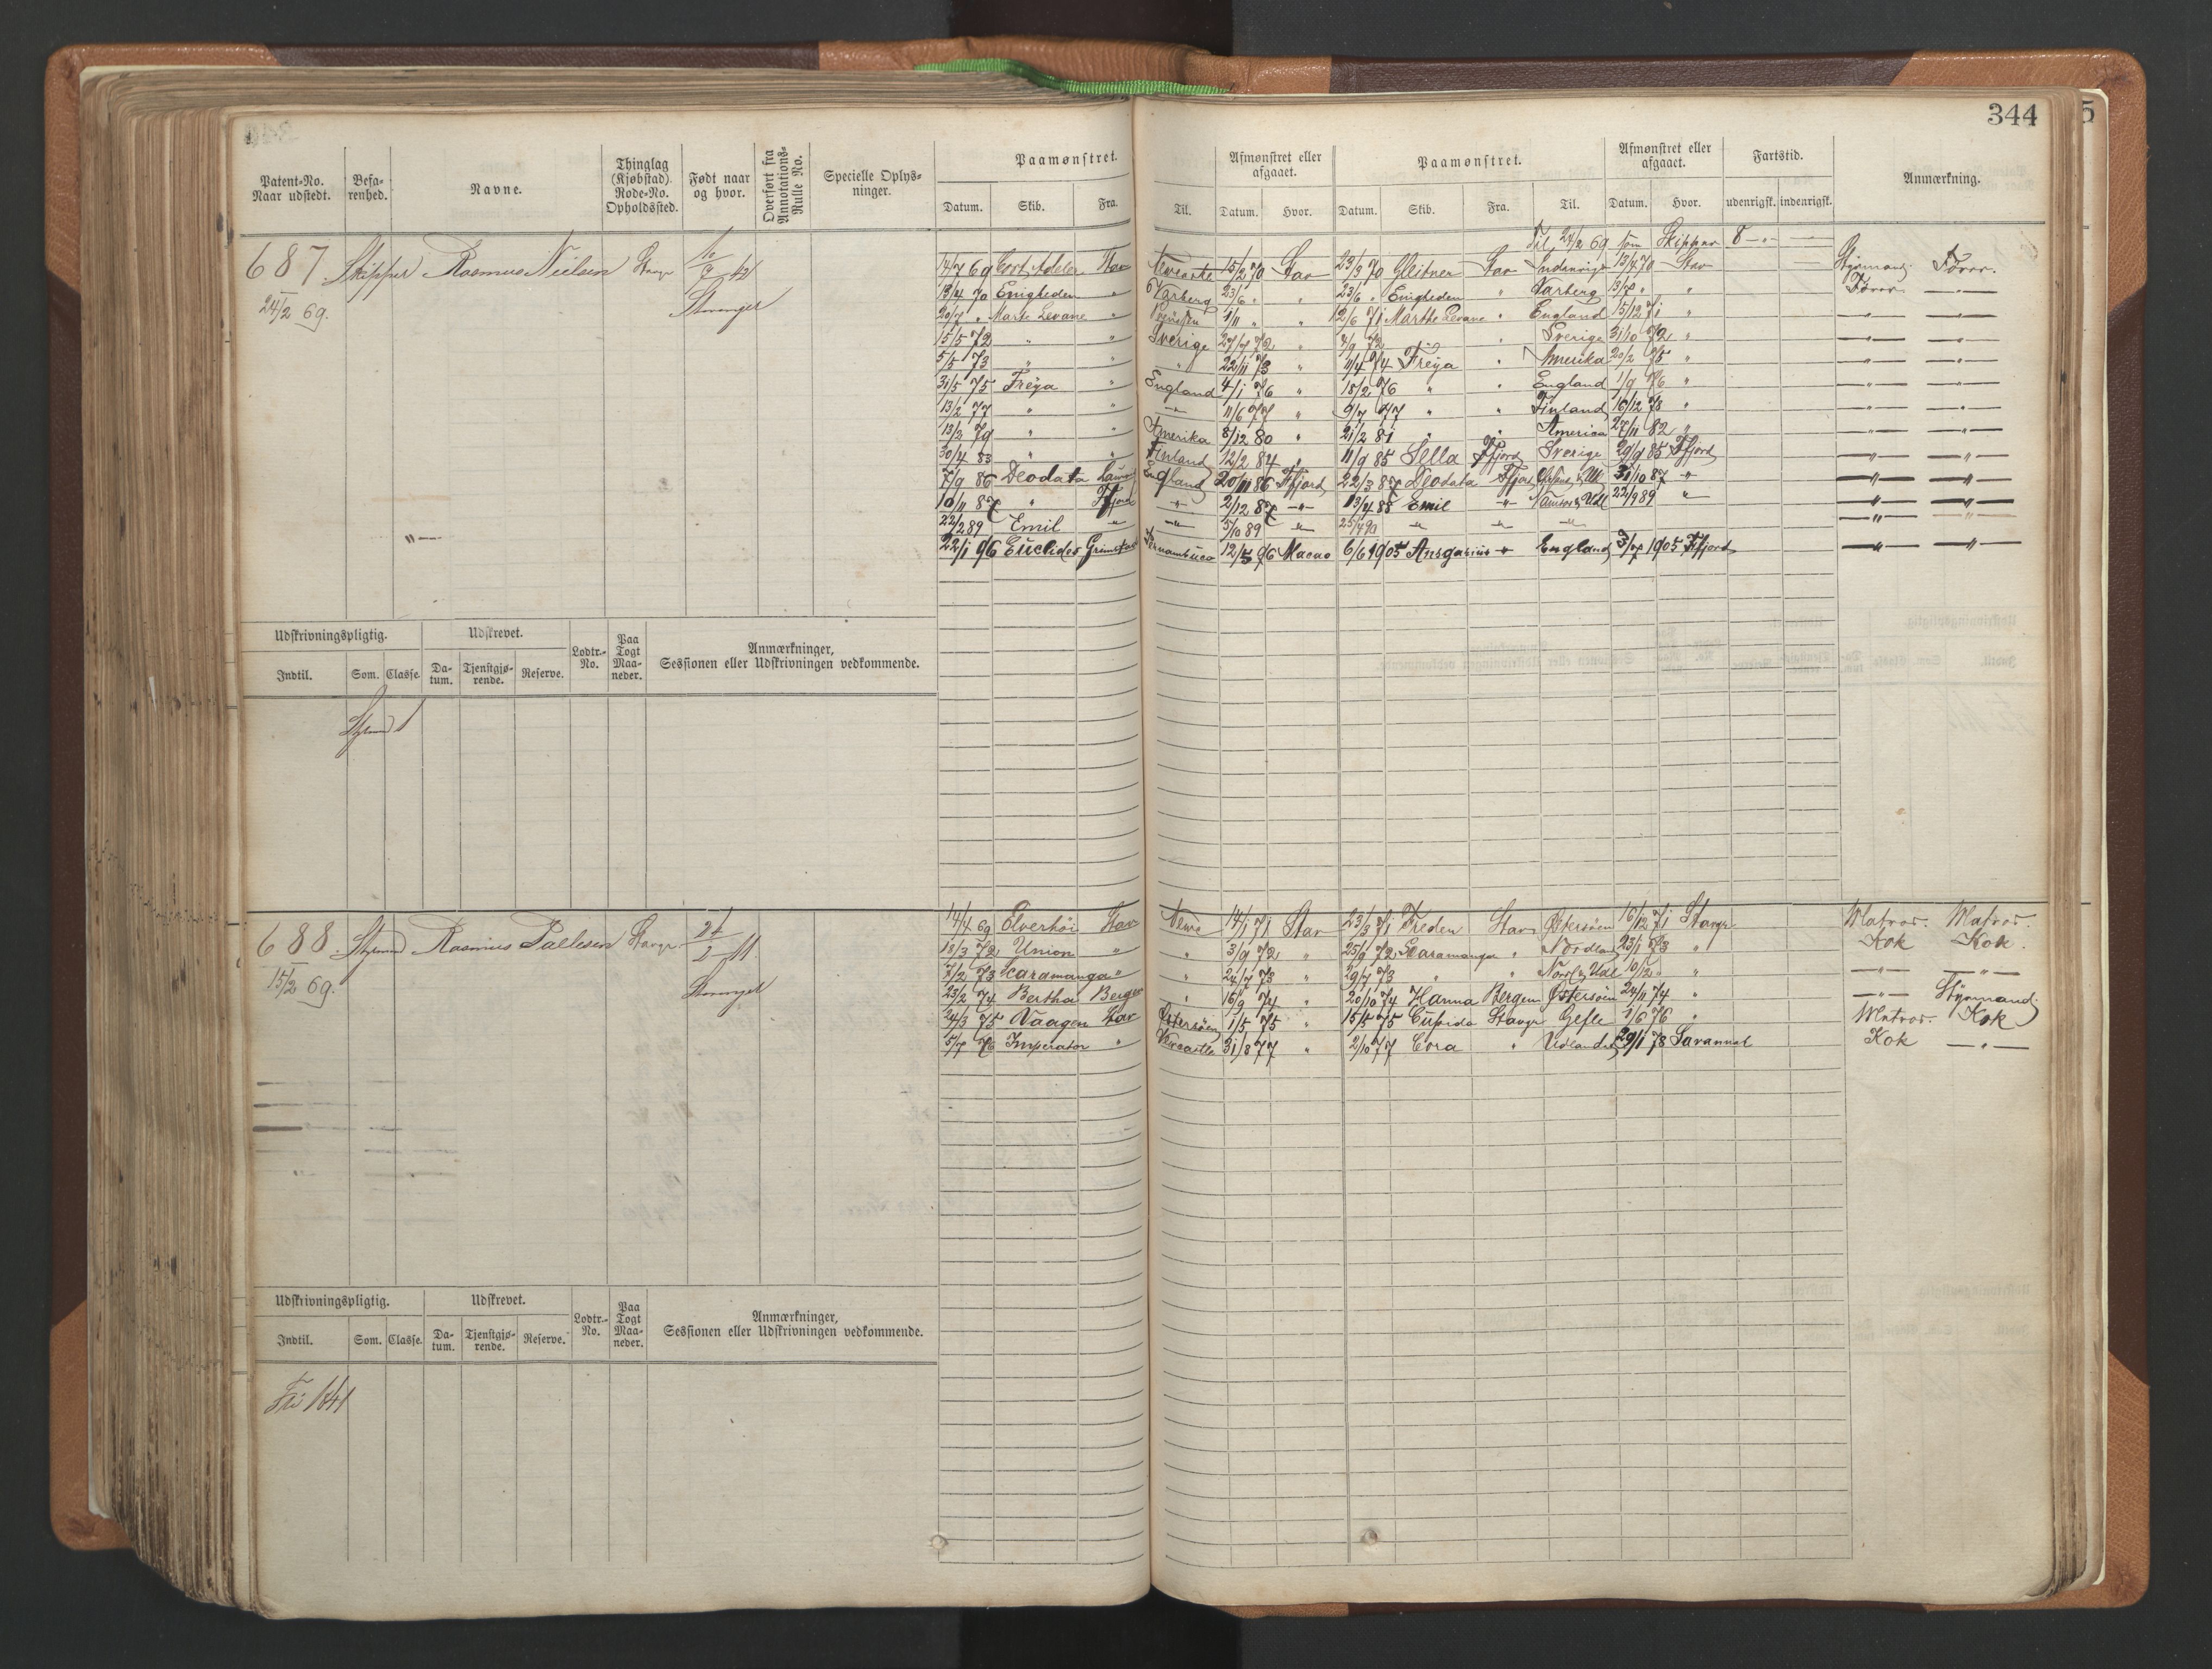 344
Patent-No. Naar udstedt. Befarenhed. Navne. Thinglag (Kjøbstad). Rode-No. Opholdssted. Født naar og hvor. Overført fra Annotations-Rulle No. Specielle Oplysninger. Paamønstret. Afmønstret eller afgaaet. Paamønstret. Afmønstret eller afgaaet. Fartstid. Anmærkning.
Datum. Skib. Fra. Til. Datum. Hvor. Datum. Skib. Fra. Til. Datum. Hvor. udenrigsk. indenrigsk.
Til 24/2 69 som Skipper 8 -"-
687 Skipper Rasmus Nielsen Stavgr 42
24/2 69. Stavanger
14/7 69 Cort Adeler Stav Newcastle 15/2 70 Stav 23/3 70 Gleitner Stav Indenrigs 13/4 70 Stav Styrmand. Fører.
13/4 70 Enigheden " Varberg 23/6 " " 23/6 " Enigheden " Varberg 13/7 " " Fører -"-
20/7 " Marte Levane " 1/11 " " 12/6 71 Marthe Levane " England 15/12 71 " -"- -"-
15/5 72 " " Sverige 27/7 72 " 4/9 72 " " Sverige 31/10 72 " -"- -"-
5/5 73 " " " 22/11 73 " 11/4 74 Freya " Amerika 20/2 75 " -"- -"-
31/5 75 Freya " England 4/1 76 " 18/2 76 " " England 1/9 76 " -"- -"-
13/2 77 " " -"- 11/6 77 " 9/7 77 " " Finland 16/12 78 " -"- -"-
13/2 79 " " Amerika 8/12 80 " 21/2 81 " " America 27/11 82 " -"- -"-
30/4 83 " " Finland 12/2 84 " 11/9 85 Sella Ffjord Sverige 29/9 85 Ffjord -"- -"-
7/9 86 Deodata England 20/11 86 Ffjord 22/3 87 Deodata Ffjord 31/10 87 -"- -"- -"-
10/11 87 " Ffjord -"- 2/12 87 -"- 13/4 88 Emil -"- & Udl 22/9 89 " -"- -"-
22/2 89 Emil -"- -"- 5/10 89 -"- 25/4 90 -"- -"- -"- -"- -"-
-"- 22/1 96 Euclides Grimstad Pernambuco 12/5 96 Macao 6/6 1905 Ansgarius -"- England 3/7 1905 Ffjord -"- -"-
Udskrivningspligtig. Udskrevet. Lodtr.-No. Paa Togt Maaneder. Anmærkninger, Sessionen eller Udskrivningen vedkommende.
Indtil. Som. Classe. Datum. Tjenstgjørende. Reserve.
Styrmd 1
688 Styrmd Rasmus Paelesen Stavgr 11.
15/2 69. Stavanger
14/4 69 Elverhöi Stav Newc 14/1 71 Stav 23/3 71 Freden Stav Østersöen 16/12 71 Stavgr Matros. Matros.
13/3 72 Union " " 3/9 72 " 25/9 72 Scaramanga " Nordland 23/1 73 " Kok Kok.
7/2 73 Scaramanga " " 24/7 73 " 29/7 73 " " Nordl & Udl 10/12 " " -"- -"-
23/2 74 Bertha Bergen " 16/9 74 " 20/10 74 Hanna Bergen Østersöen 24/11 74 " -"- Styrmand.
24/3 75 Vaagen Stav Østersöen 1/5 75 " 15/5 75 Cupido Stavgr Gefle 1/6 76 " Matros. Kok
5/7 76 Imperator " Newcastle 31/8 77 " 2/10 77 Cora " Udlandet 29/1 78 Savannah Kok -"-
Udskrivningspligtig. Udskrevet. Lodtr.-No. Paa Togt Maaneder. Anmærkninger, Sessionen eller Udskrivningen vedkommende.
Indtil. Som. Classe. Datum. Tjenstgjørende. Reserve.
Fri 1841